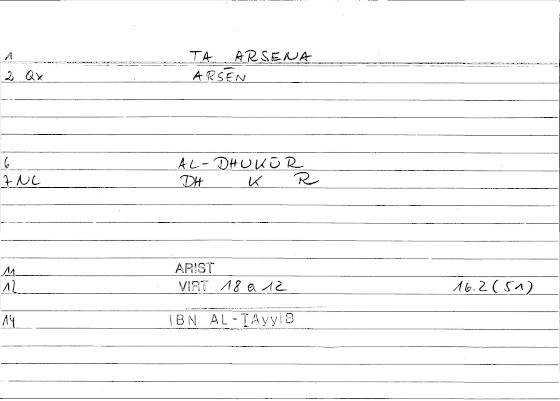 1 TA ARSENA
2 Qx ARSĒN
6 AL-DHUKŪR
7 NL DH K R
11 ARIST
12 VIRT 18 a 12 16.2 (51)
14 IBN AL-ṬAyyiB